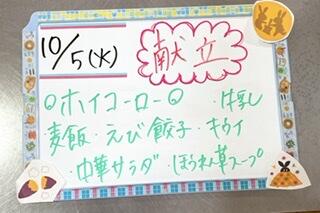 10/5(火) 献立
◎ホイコーロー◎ ・牛乳
麦飯・えび餃子・キウイ
・中華サラダ ・ほうれん草スープ